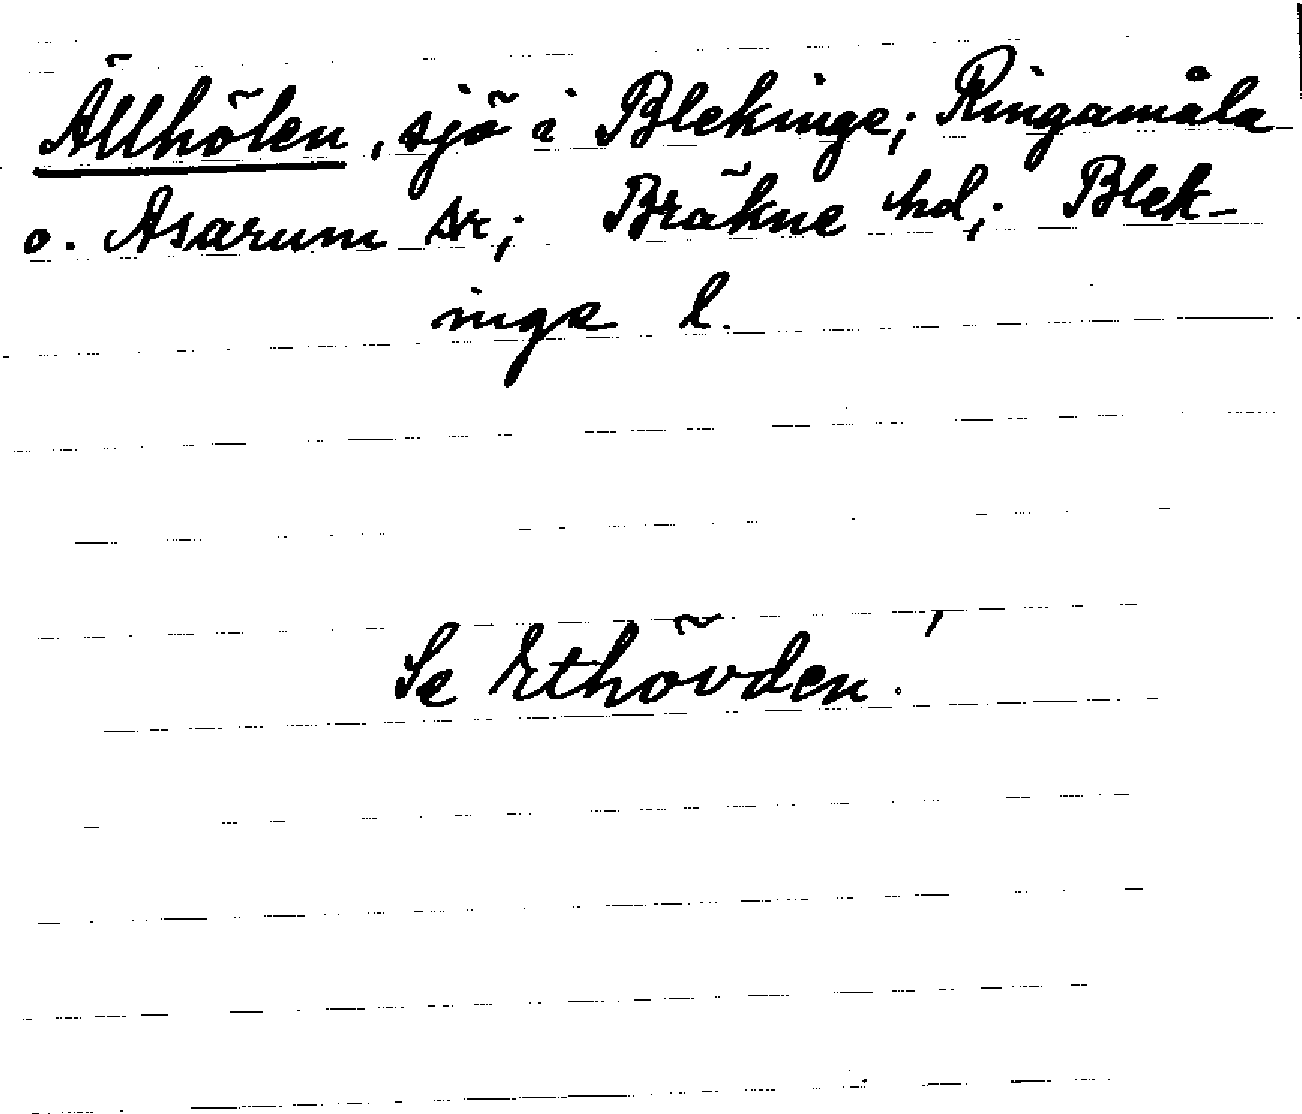 Ällhölen, sjö i Blekinge; Ringamåla
o. Asarum sr; Bräkne hd; Blek-
inge l.
Se Ethövden.